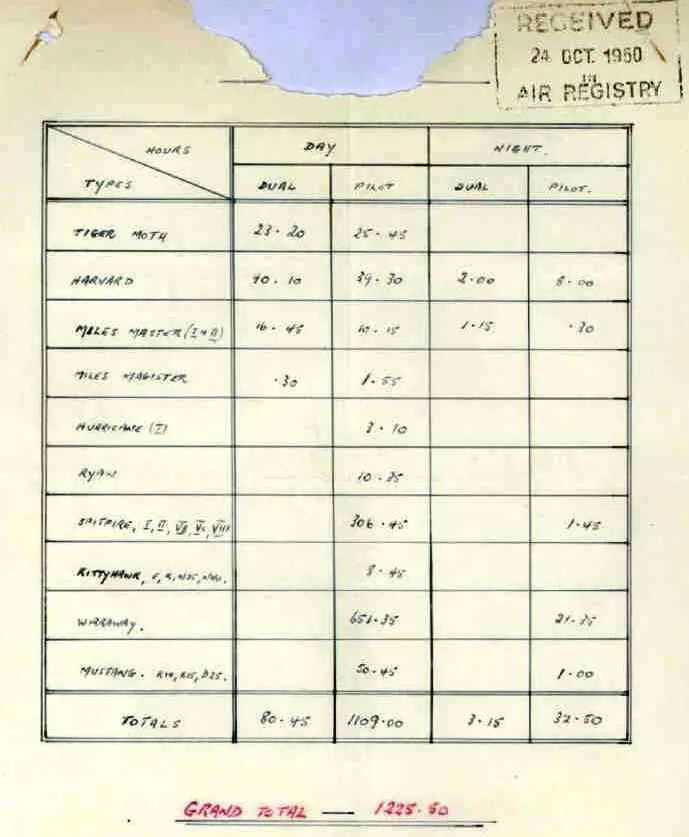 RECEIVED
24 OCT. 1950
IN
AIR REGISTRY
HOURS DAY NIGHT.
TYPES DUAL PILOT DUAL PILOT.
TIGER MOTH 23·20 25·45
HARVARD 40·10 39·30 2·00 8·00
MILES MASTER (I & II) 16·45 10·15 1·15 ·30
MILES MAGISTER ·30 1·55
HURRICANE (I) 3·10
RYAN 10·35
SPITFIRE, I, II, VB, Vc, VIII 306·45 1·45
KITTYHAWK, 8·45
WIRRAWAY. 651·35 21·35
MUSTANG. 50·45 1·00
TOTALS 80·45 1109·00 3·15 32·50
GRAND TOTAL — 1225·50